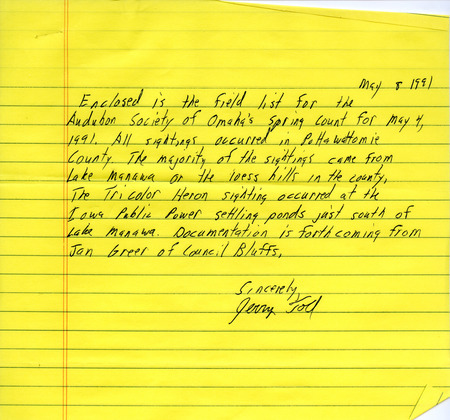 May 8 1991
Enclosed is the field list for the
Audubon Society of Omaha's Spring Count for May 4,
1991. All sightings occurred in Pottawattomie
County. The majority of the sightings came from
Lake Manawa or the loess hills in the county.
The Tricolor Heron sighting occurred at the
Iowa Public Power settling ponds just south of
Lake Manawa. Documentation is forthcoming from
Jan Greer of Council Bluffs.
Sincerely,
Jerry